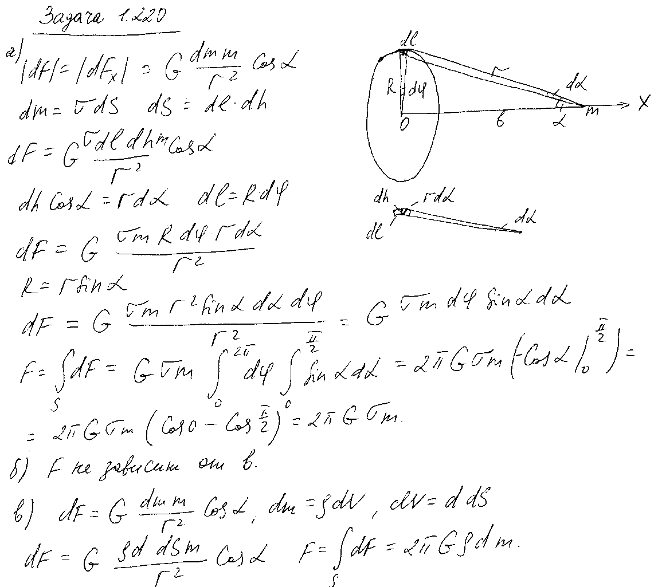 Задача 1.220
а) |dF| = |dFx| = G dm m / r² Cos α
dm = σdS dS = dl·dh
dF = G σdl dh m Cos α / r²
dh Cos α = r dα dl = R dφ
dF = G σm R dφ r dα / r²
R = r Sin α
dF = G σm r² Sin α dα dφ / r² = G σm dφ Sin α dα
F = ∫S dF = G σm ∫0^2π dφ ∫0^π/2 Sin α dα = 2π G σm (-Cos α |0^π/2) =
= 2π G σm (Cos 0 - Cos π/2) = 2π G σm.
б) F не зависит от в.
в) dF = G dm m / r² Cos α, dm = ρdV, dV = d dS
dF = G ρd dS m / r² Cos α F = ∫S dF = 2π G ρd m.
dl
r
R
dφ
dα
O
в
α
m
X
dh
r dα
dl
dα